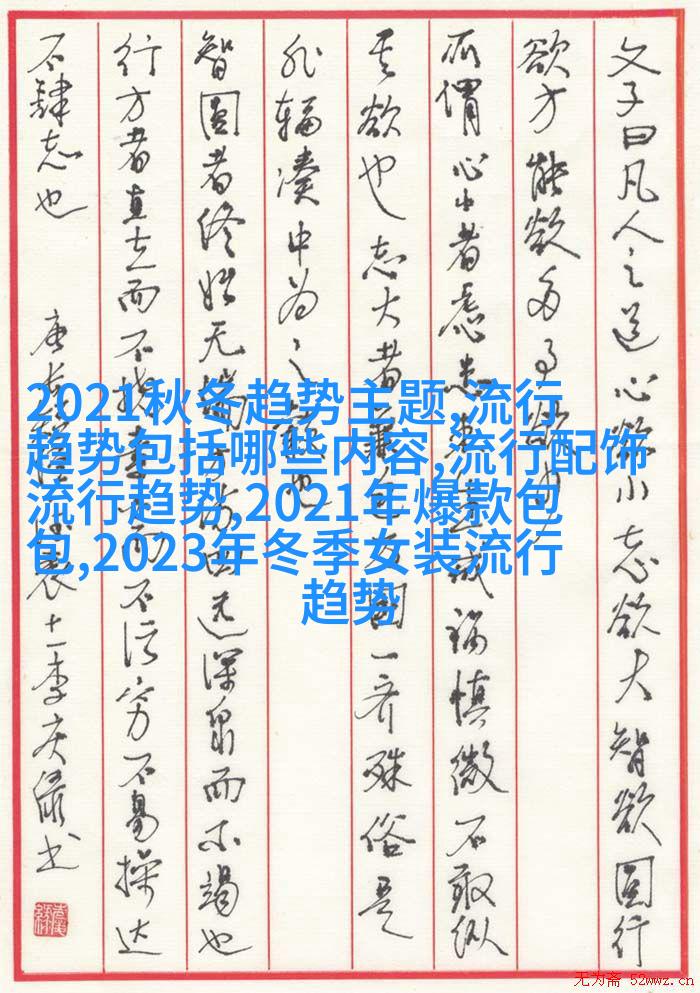 文子曰凡人之道心欲小志欲大智欲圆行
欲方能欲多事欲
所谓心小者虑患未生戒祸慎微不敢纵
其欲也志大者兼包万国一齐殊俗是
非辐凑中为之毂也
智圆者终始无端方流四远深泉而不竭也
行方者直立而不挠素白而不污穷不易操达
不肆志也
2021秋冬趋势主题,流行
趋势包括哪些内容,流行配饰
流行趋势,2021年爆款包
包,2023年冬季女装流行
趋势
无为斋 52wwz.cn